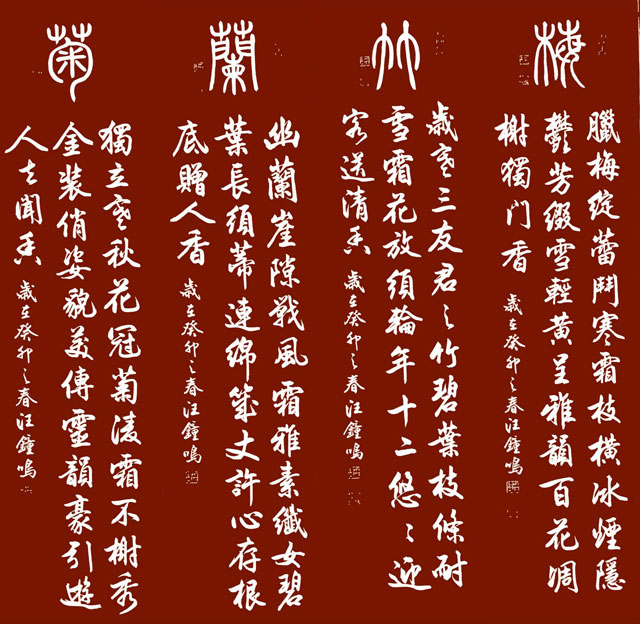 梅
臘梅綻蕾鬥寒霜枝橫冰煙隱
鬱芳綴雪輕黃呈雅韻百花凋
榭獨鬥香
歲在癸卯之春汪鐘鳴
竹
歲寒三友君之竹碧葉枝條耐
雪霜花放須輪年十二悠之迎
客送清香
歲在癸卯之春汪鐘鳴
蘭
幽蘭崖隙戰風霜雅素纖女碧
葉長須蒂連綿幾丈許心存根
底贈人香
歲在癸卯之春汪鐘鳴
菊
獨立寒秋花冠菊淩霜不榭秀
金裝俏姿貌美傳靈韻豪引遊
人去聞香
歲在癸卯之春汪鐘鳴